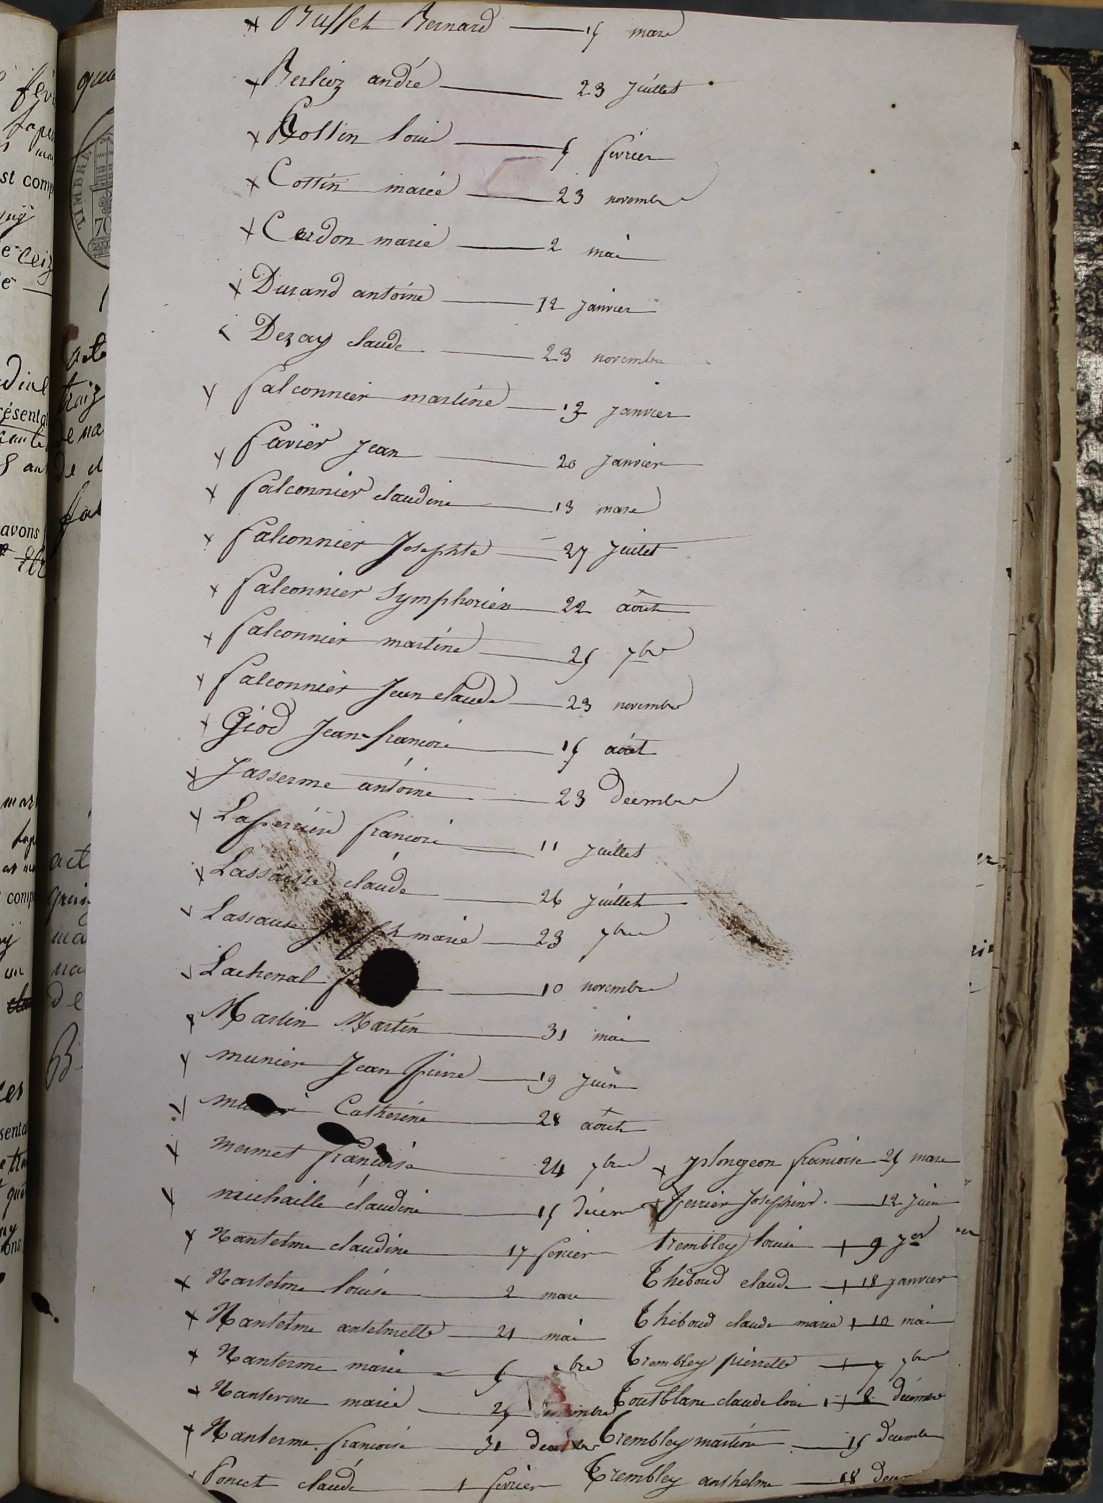 Buffet Bernard 15 mars
Berlioz andré 23 Juillet
Cottin loui 5 février
Cottin marie 23 novembre
Cerdon marie 2 mai
Durand antoine 12 janvier
Dezay claude 23 novembre
falconnier martine 13 janvier
favier Jean 20 janvier
falconnier claudine 13 mars
falconnier Josephte 27 Juilet
falconnier Symphorien 22 août
falconnier martine 25 7bre
falconnier Jean claude 23 novembre
Giod Jean-francois 15 août
Jasserme antoine 23 decembre
francois 11 Juillet
Lassausse claude 26 Juillet
Lassausse marie 23 7bre
Lachenal 10 novembre
Martin Martin 31 mai
munier Jean pierre 19 Juin
Catherine 28 août
mermet françoise 24 7bre
michaille claudine 15 décem
Nantelme claudine 17 fevrier
Nantelme louise 2 mars
Nantelme antelmette 21 mai
Nanterme marie 5 bre
Nanterme marie 25
Nanterme francoise 31 decembre
Poncet claude 1 fevrier
yslongeon francoise 25 mars
perrier Josephine 12 Juin
trembley louise 9 7er
Thiboud claude 18 janvier
Thiboud claude marie 10 mai
Trembley pierrette 7 7bre
Toutblanc claude loui 2 décembre
Trembley martine 15 Decembre
Trembley anthelme 18 decem